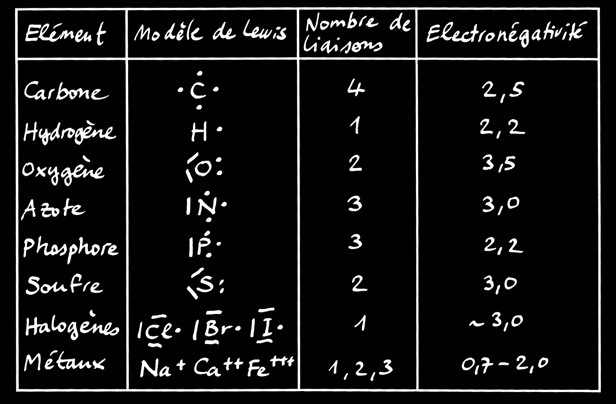 Elément Modèle de Lewis Nombre de liaisons Electronégativité
Carbone C 4 2,5
Hydrogène H 1 2,2
Oxygène O 2 3,5
Azote N 3 3,0
Phosphore P 3 2,2
Soufre S 2 3,0
Halogènes Cl Br I 1 ~3,0
Métaux Na+ Ca++ Fe+++ 1,2,3 0,7-2,0